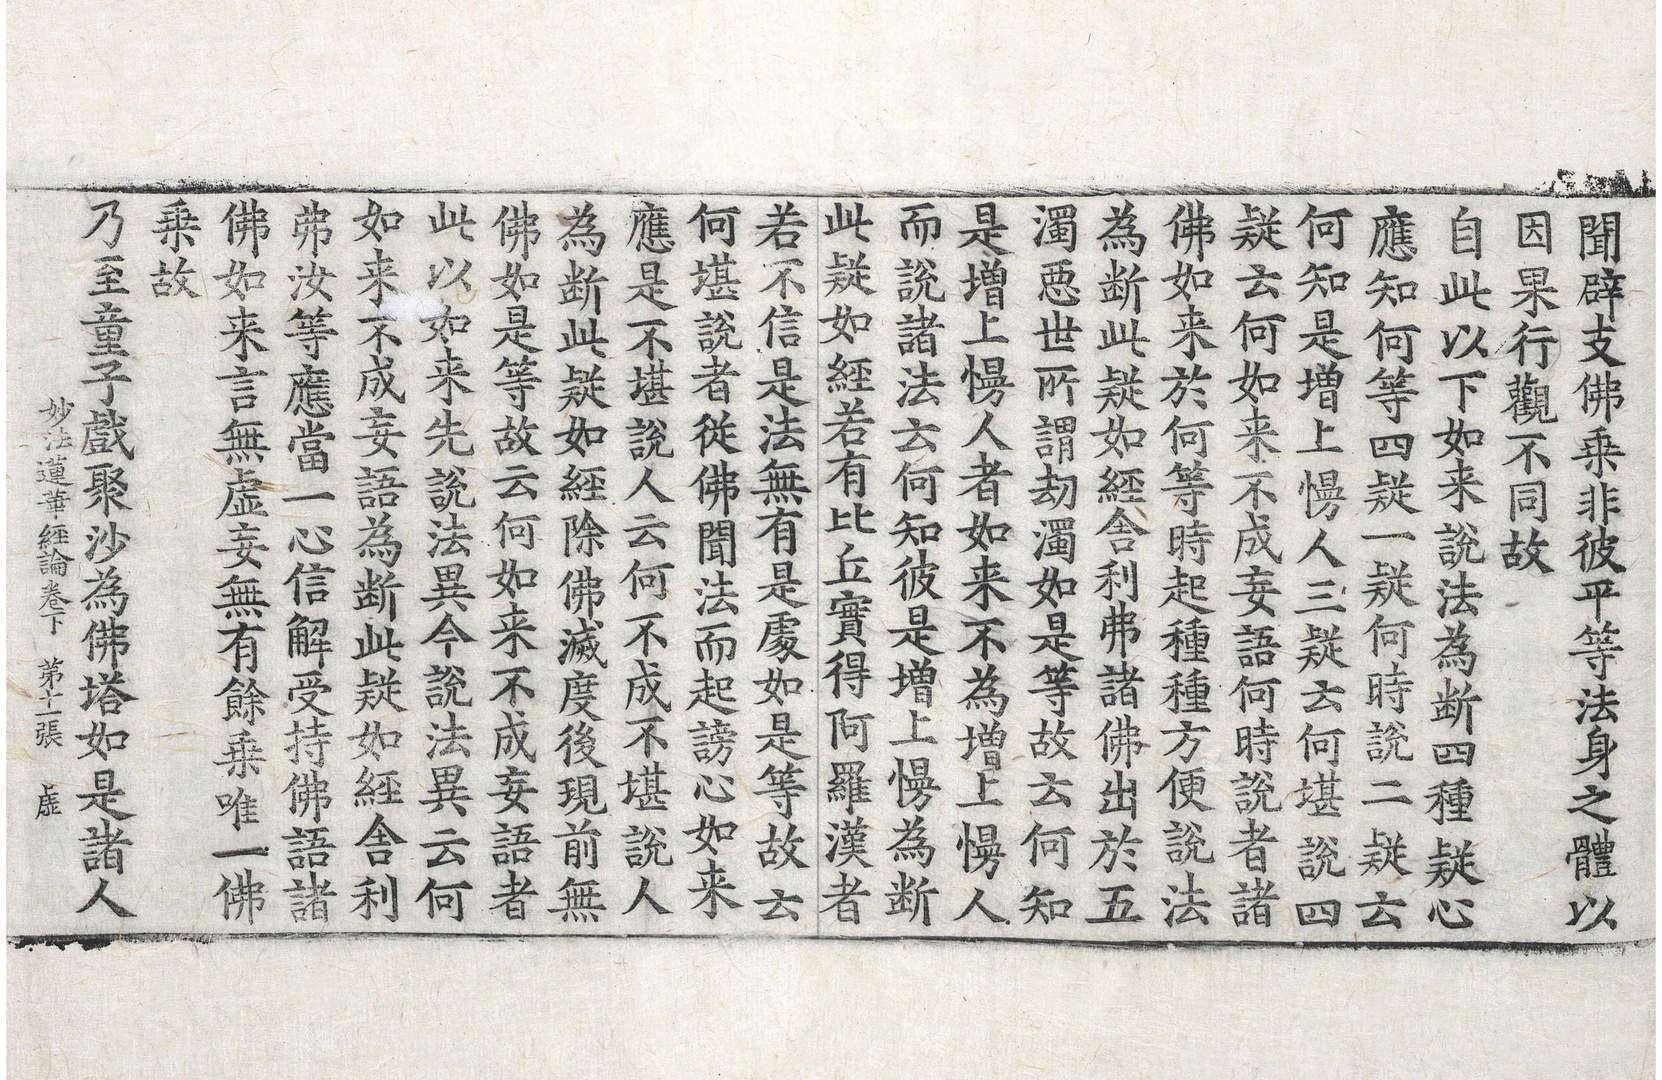 聞辟支佛乘非彼平等法身之體以
因果行觀不同故
自此以下如来說法為断四種疑心
應知何等四疑一疑何時說二疑云
何知是增上慢人三疑云何堪說四
疑云何如来不成妄語何時說者諸
佛如来於何等時起種種方便說法
為断此疑如經舍利弗諸佛出於五
濁惡世所謂劫濁如是等故云何知
是增上慢人者如来不為增上慢人
而說諸法云何知彼是增上慢為断
此疑如經若有比丘實得阿羅漢者
若不信是法無有是處如是等故云
何堪說者從佛聞法而起謗心如来
應是不堪說人云何不成不堪說人
為断此疑如經除佛滅度後現前無
佛如是等故云何如来不成妄語者
此以如来先說法異今說法異云何
如来不成妄語為断此疑如經舍利
弗汝等應當一心信解受持佛語諸
佛如来言無虛妄無有餘乘唯一佛
乘故
乃至童子戲聚沙為佛塔如是諸人
妙法蓮華經論卷下 第十一張 虛